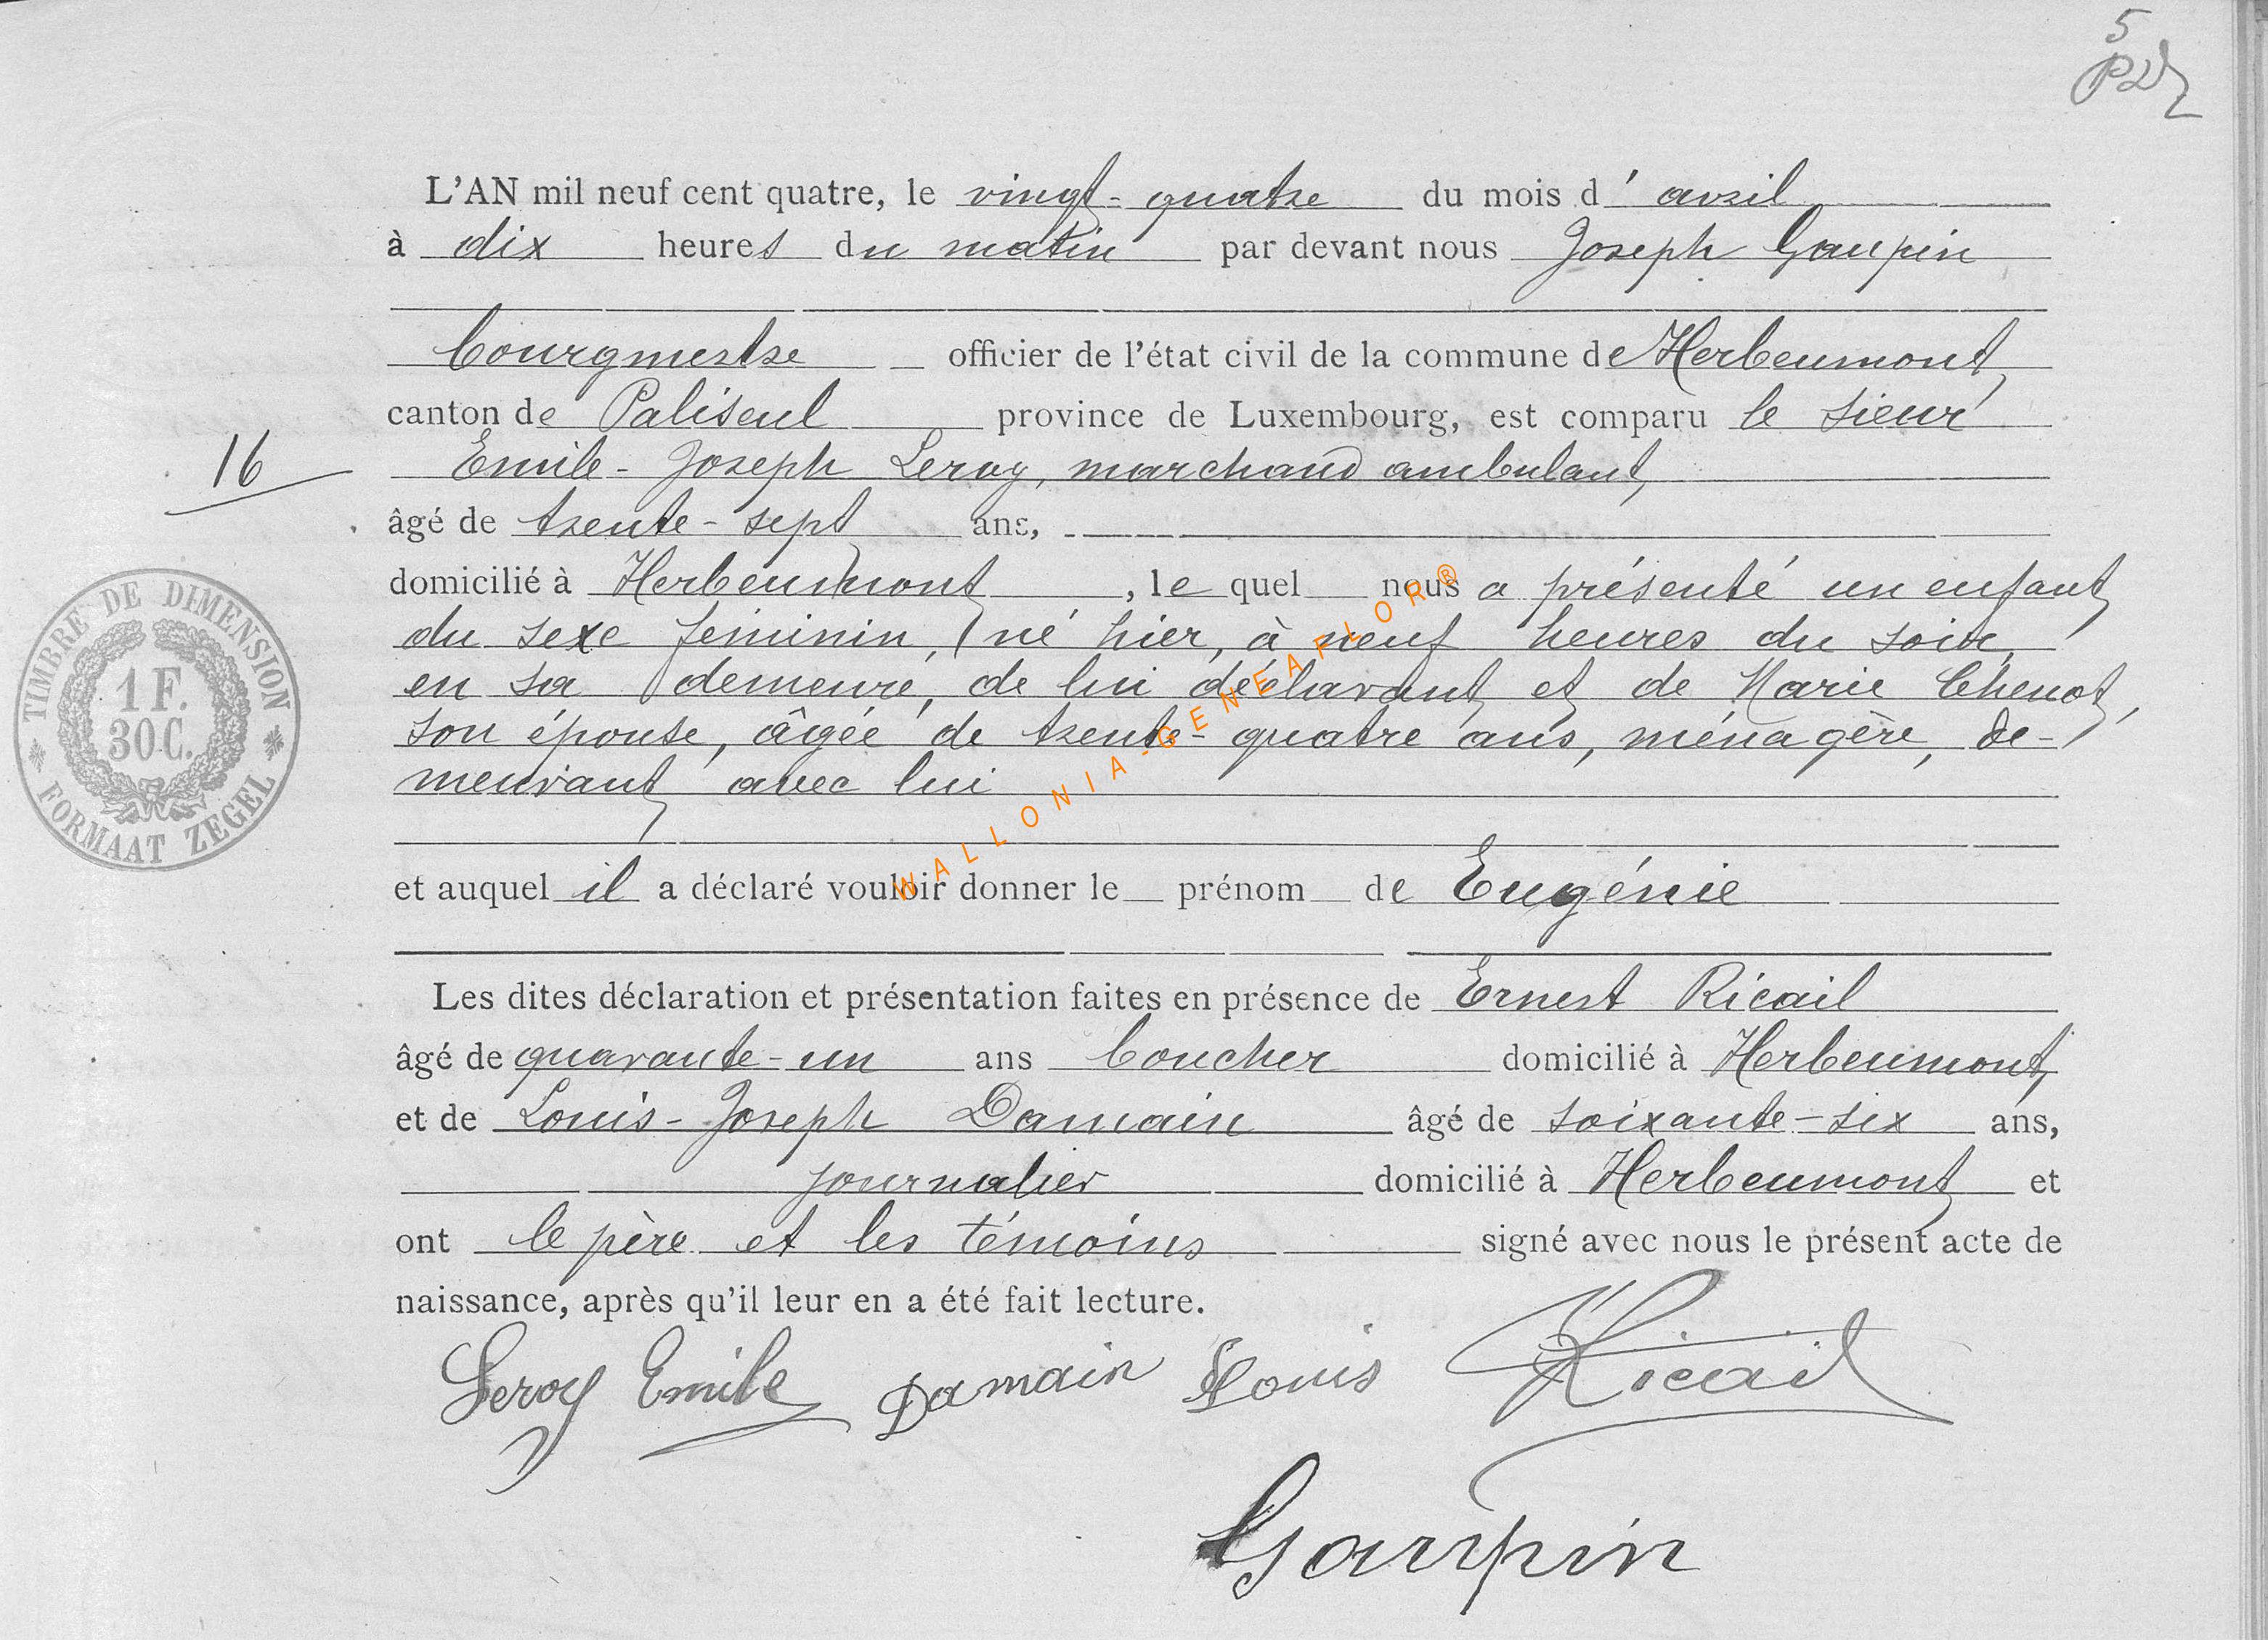 5
L'AN mil neuf cent quatre, le vingt-quatre du mois d'avril
à dix heures du matin par devant nous Joseph Gaupin
bourgmestre officier de l'état civil de la commune de Herbeumont,
canton de Paliseul province de Luxembourg, est comparu le sieur
16
Emile-Joseph Leroy, marchand ambulant,
âgé de trente-sept ans,
domicilié à Herbeumont, lequel nous a présenté un enfant
du sexe féminin, né hier, à neuf heures du soir,
en sa demeure, de lui déclarant et de Marie Chenot,
son épouse, âgée de trente-quatre ans, ménagère, de-
meurant avec lui
TIMBRE DE DIMENSION
1 F.
30 C.
FORMAAT ZEGEL
et auquel il a déclaré vouloir donner le prénom de Eugénie
Les dites déclaration et présentation faites en présence de Ernest Ricail
âgé de quarante-un ans boucher domicilié à Herbeumont,
et de Louis-Joseph Damain âgé de soixante-six ans,
journalier domicilié à Herbeumont et
ont le père et les témoins signé avec nous le présent acte de
naissance, après qu'il leur en a été fait lecture.
Leroy Emile Damain Louis Ricail
Gaupin
WALLONIA-GENEAFLOR®